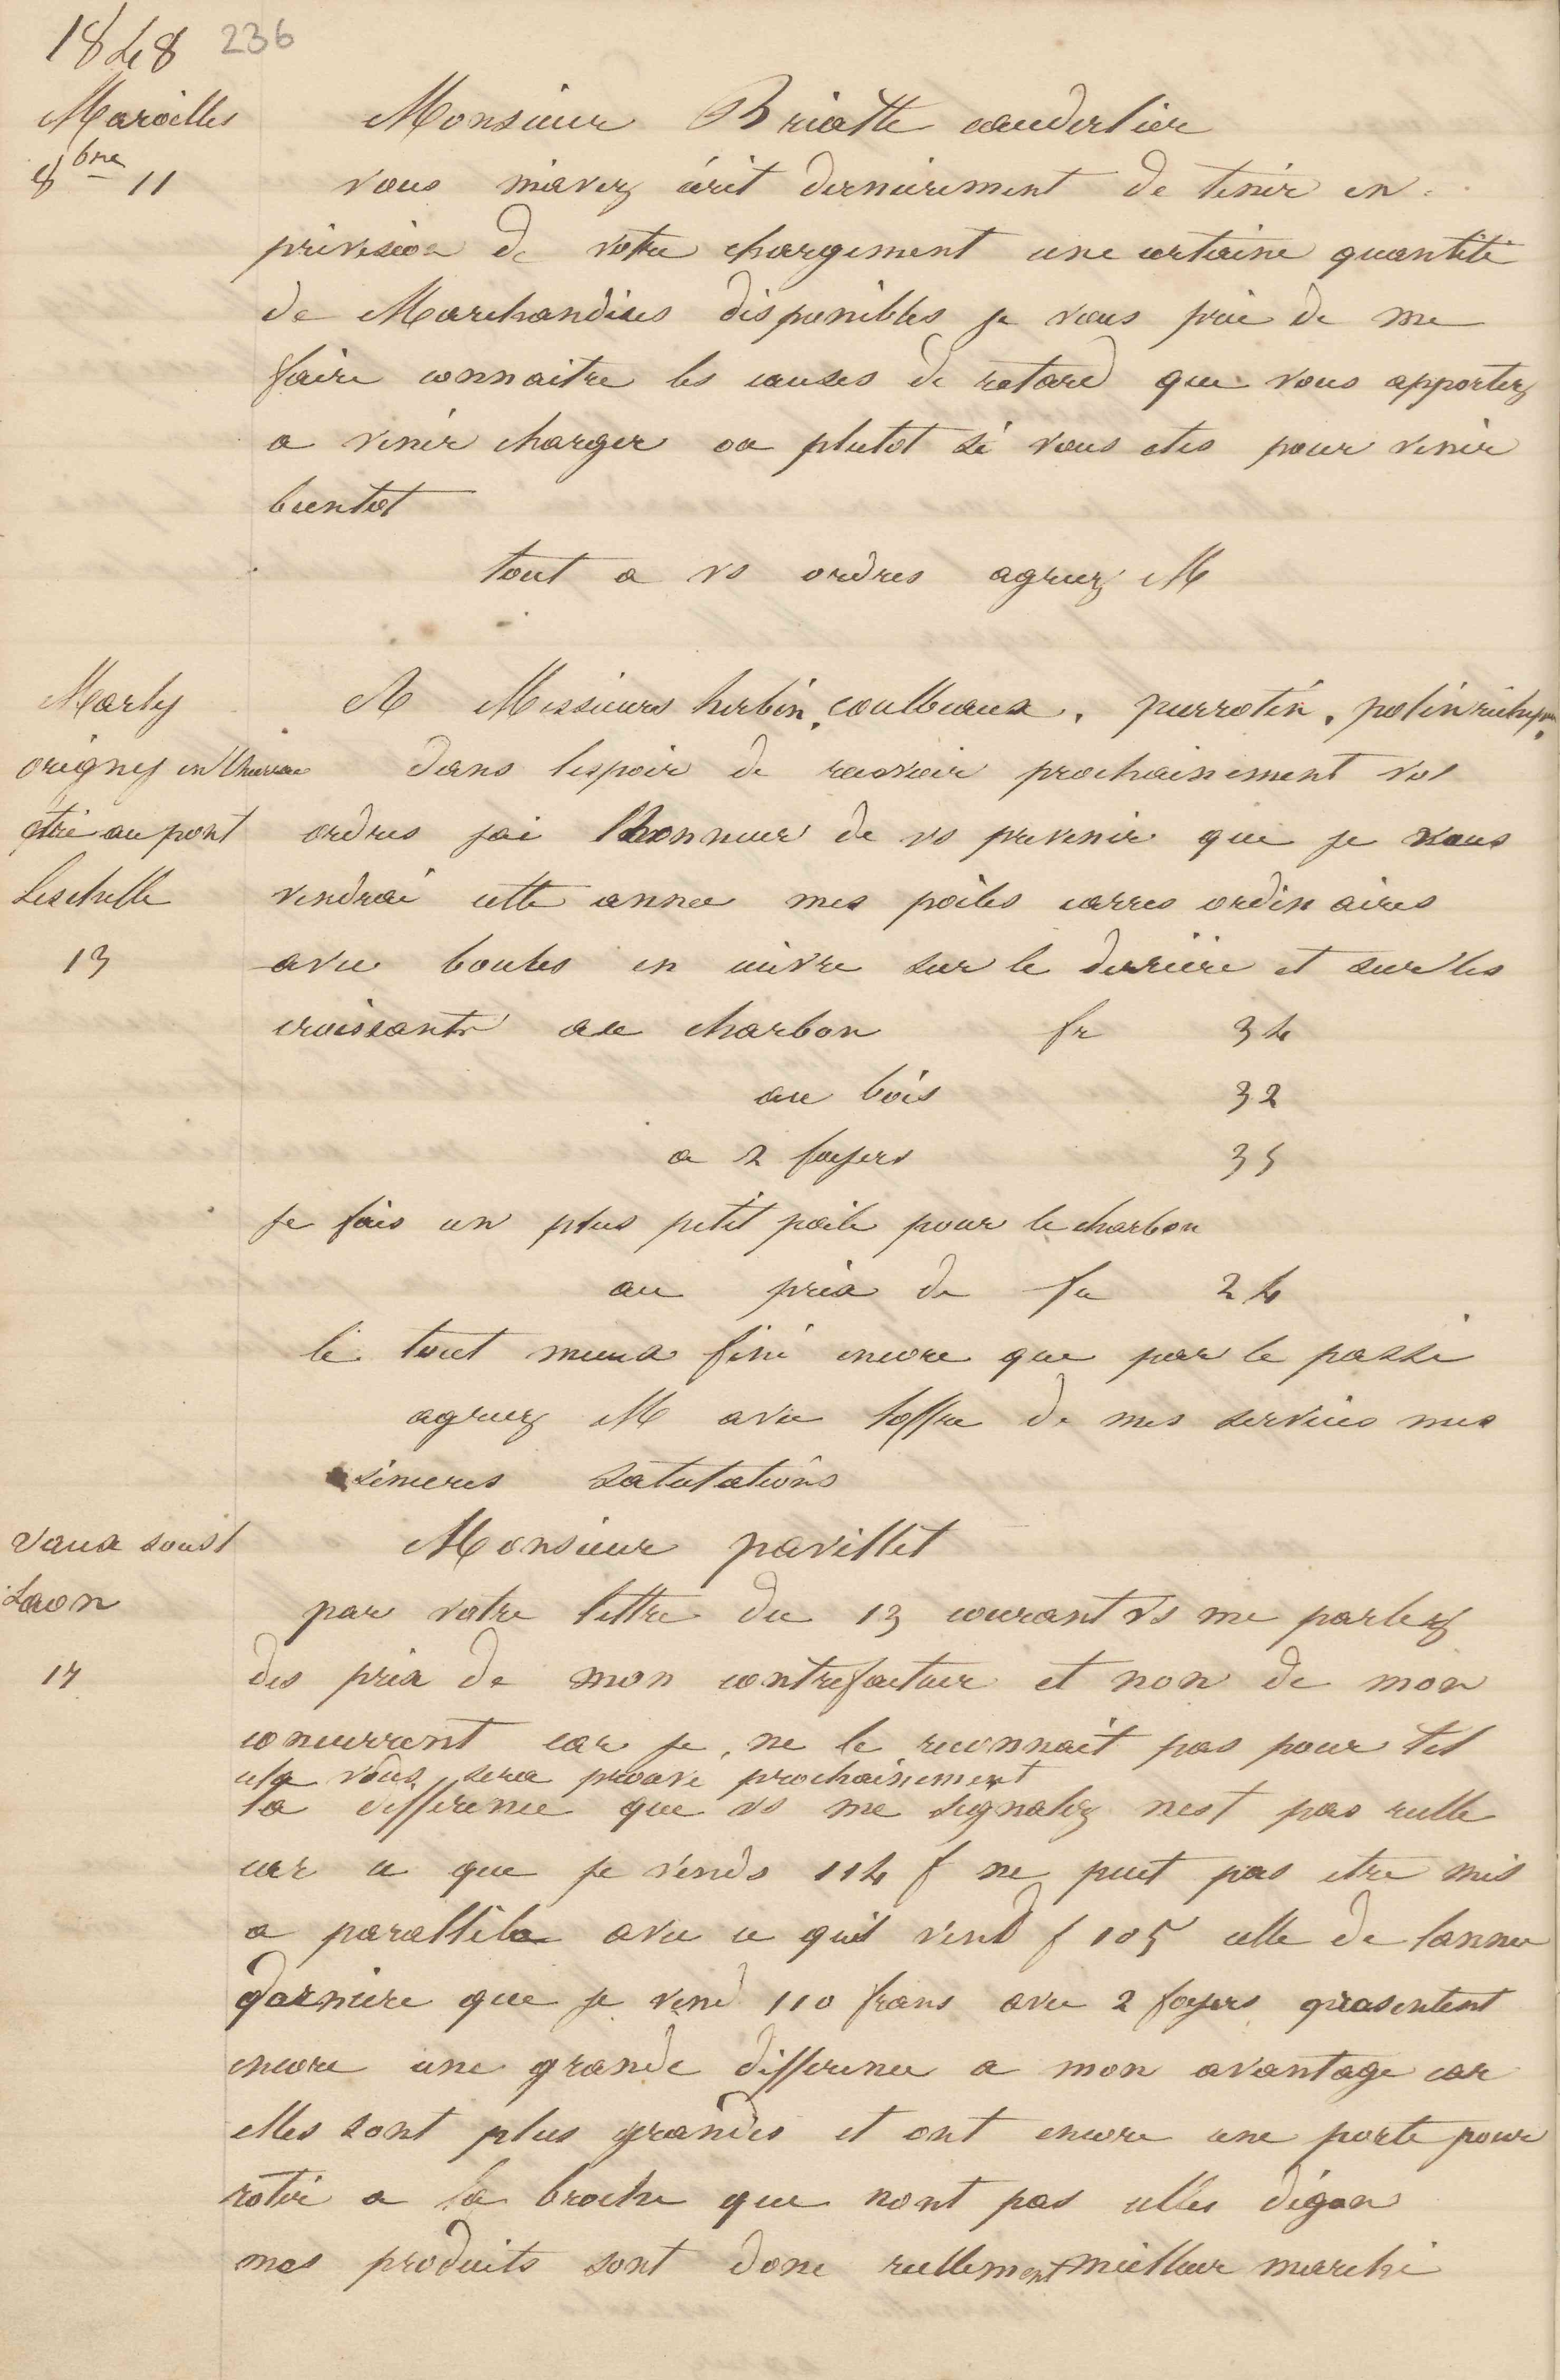 1848 236
Maroilles
8bre 11
Monsieur Briatte cauderlier
vous m'avez écrit dernierement de tenir en
prévision de votre chargement une certaine quantité
de Marchandises disponibles je vous prie de me
faire connaitre les causes de retard que vous apportez
a venir charger ou plutot si vous etes pour venir
bientot
tout a vs ordres agreez M
Marly
origny en thierrae
étrée au pont
Leschelle
13
A Messieurs herbin, coulbeaux, pierrotin, polin
dans lespoir de recevoir prochainement vos
ordres jai lhonneur de vs prevenir que je vous
vendrai cette annee mes poiles carres ordinaires
avec boules en cuivre sur le derriere et sur les
croissants au charbon fr 34
au bois 32
a 2 foyers 35
Je fais un plus petit poile pour le charbon
au prix de fr 24
le tout mieux fini encore que par le passé
agreez M avec loffre de mes services mes
sinceres salutations
vaux sous
Laon
17
Monsieur pavillet
par votre lettre du 13 courant vs me parlez
des prix de mon contrefacteur et non de mon
concurrent car je ne le reconnait pas pour tel
cela vous sera prouvé prochainement
la difference que vs me signalez nest pas reelle
car ce que je vends 114 f ne peut pas etre mis
a parallele avec ce quil vend f 105 celle de lannee
derniere que je vend 110 frans avec 2 foyers presentent
encore une grande difference a mon avantage car
elles sont plus grandes et ont encore une porte pour
rotir a la broche que nont pas celles dégon
mes produits sont donc reellement meilleur marché